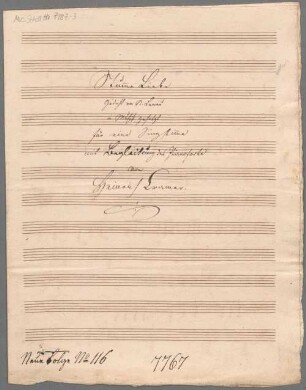 Stumme Liebe
Gedicht von N. Lenau
in Musik gesetzt
für eine Singstimme
mit Begleitung des Pianoforte
von
Heinrich
Neue Folge No 116
7767